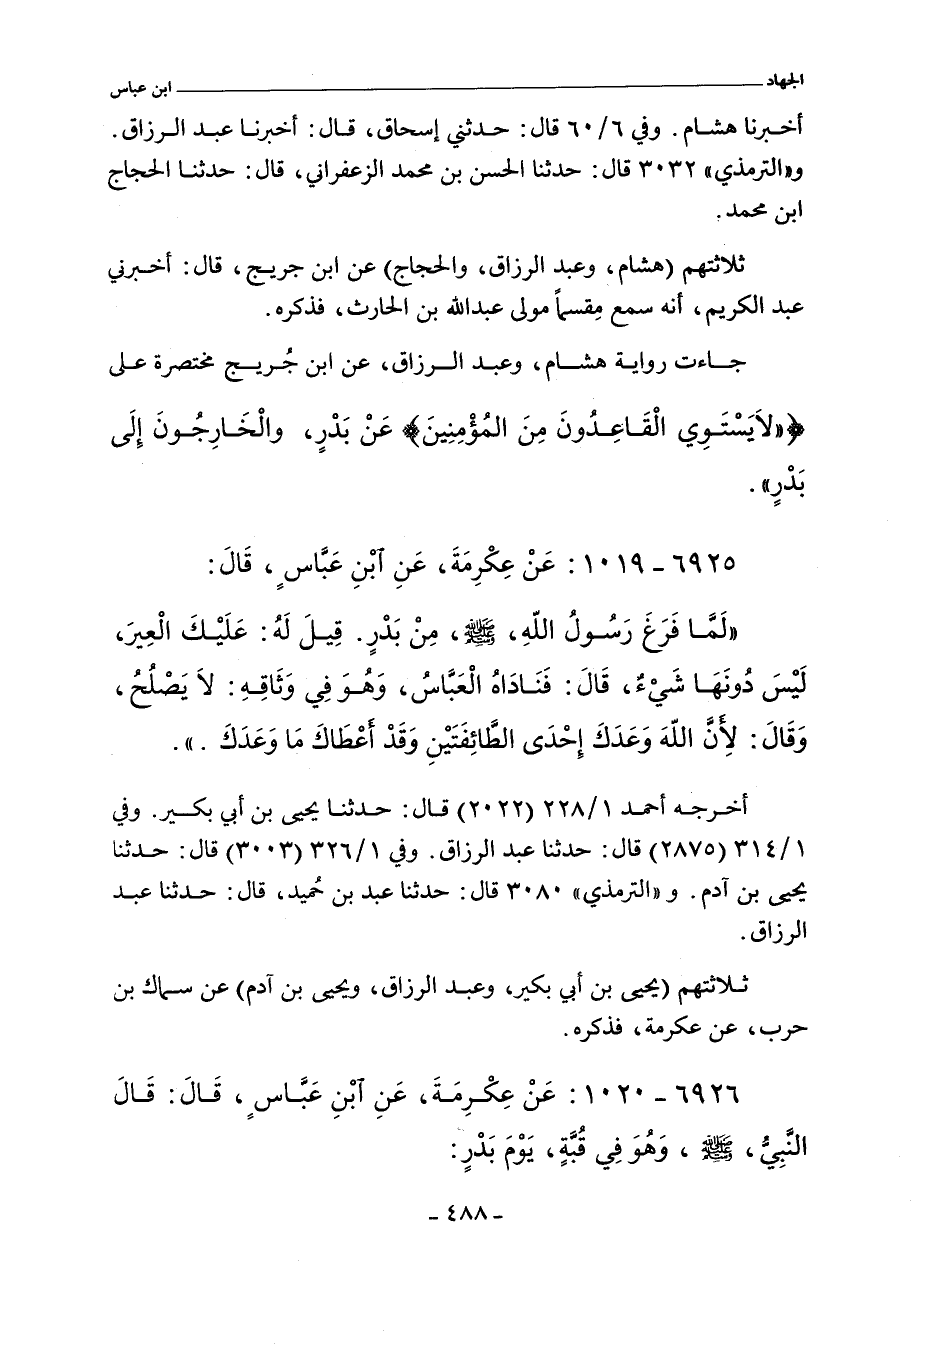 الجهاد ـــــــــــــــــــــــــــــــــــــــــــــــــ ابن عباس
أخبرنا هشام. وفي ٦/ ٦٠ قال: حدثني إسحاق، قال: أخبرنا عبد الرزاق.
و«الترمذي» ٣٠٣٢ قال: حدثنا الحسن بن محمد الزعفراني، قال: حدثنا الحجاج
ابن محمد.
ثلاثتهم (هشام، وعبد الرزاق، والحجاج) عن ابن جريج، قال: أخبرني
عبد الكريم، أنه سمع مِقسماً مولى عبدالله بن الحارث، فذكره.
جاءت رواية هشام، وعبد الرزاق، عن ابن جُريج مختصرة على
﴿«لاَيَسْتَوِي الْقَاعِدُونَ مِنَ الْمُؤْمِنِينَ﴾ عَنْ بَدْرٍ، والْخَارِجُونَ إِلَى
بَدْرٍ».
٦٩٢٥ - ١٠١٩: عَنْ عِكْرِمَةَ، عَنِ ٱبْنِ عَبَّاسٍ، قَالَ:
«لَمَّا فَرَغَ رَسُولُ اللّهِ، ﷺ، مِنْ بَدْرٍ. قِيلَ لَهُ: عَلَيْكَ الْعِيرَ،
لَيْسَ دُونَهَا شَيْءٌ، قَالَ: فَنَادَاهُ الْعَبَّاسُ، وَهُوَ فِي وَثَاقِهِ: لاَ يَصْلُحُ،
وَقَالَ: لِأَنَّ اللّهَ وَعَدَكَ إِحْدَى الطَّائِفَتَيْنِ وَقَدْ أَعْطَاكَ مَا وَعَدَكَ .».
أخرجه أحمد ١/ ٢٢٨ (٢٠٢٢) قال: حدثنا يحيى بن أبي بكير. وفي
١/ ٣١٤ (٢٨٧٥) قال: حدثنا عبد الرزاق. وفي ١/ ٣٢٦ (٣٠٠٣) قال: حدثنا
يحيى بن آدم. و «الترمذي» ٣٠٨٠ قال: حدثنا عبد بن حُميد، قال: حدثنا عبد
الرزاق.
ثلاثتهم (يحيى بن أبي بكير، وعبد الرزاق، ويحيى بن آدم) عن سماك بن
حرب، عن عكرمة، فذكره.
٦٩٢٦ - ١٠٢٠: عَنْ عِكْرِمَةَ، عَنِ ٱبْنِ عَبَّاسٍ، قَالَ: قَالَ
النَّبِيُّ، ﷺ، وَهُوَ فِي قُبَّةٍ، يَوْمَ بَدْرٍ:
- ٤٨٨ -